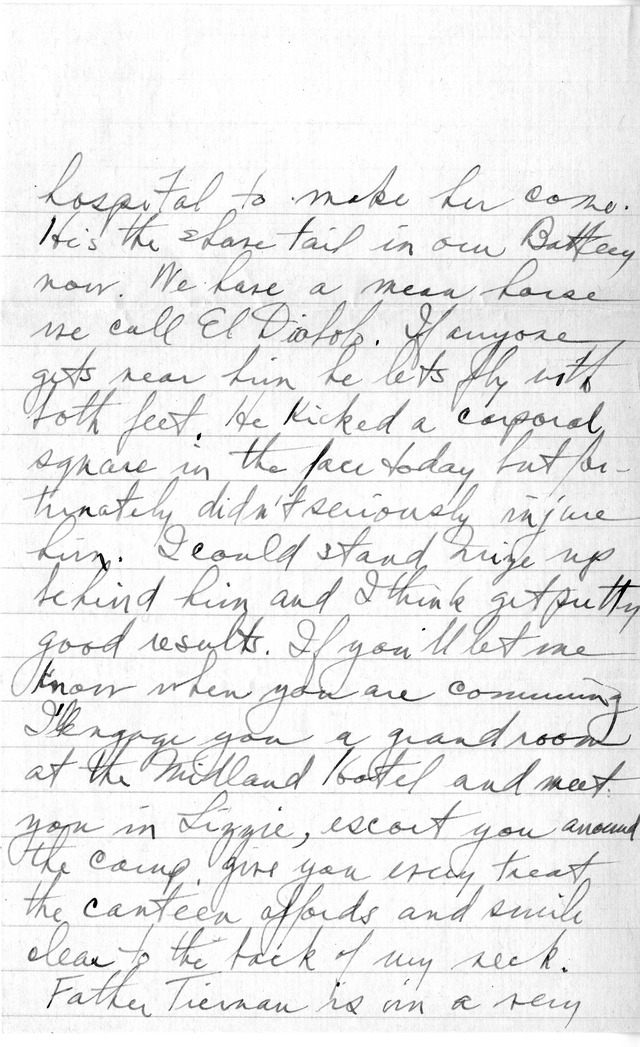 hospital to make her come.
He's the shave tail in our Battery
now. We have a mean horse
we call El Diablo. If anyone
gets near him he lets fly with
both feet. He kicked a corporal
square in the face today but for-
tunately didn't seriously injure
him. I could stand Mize up
behind him and I think get pretty
good results. If you'll let me
know when you are comming
I'll engage you a grand room
at the Midland hotel and meet
you in Lizzie, escort you around
the camp, give you every treat
the canteen affords and smile
clear to the back of my neck.
Father Tiernan is in a very